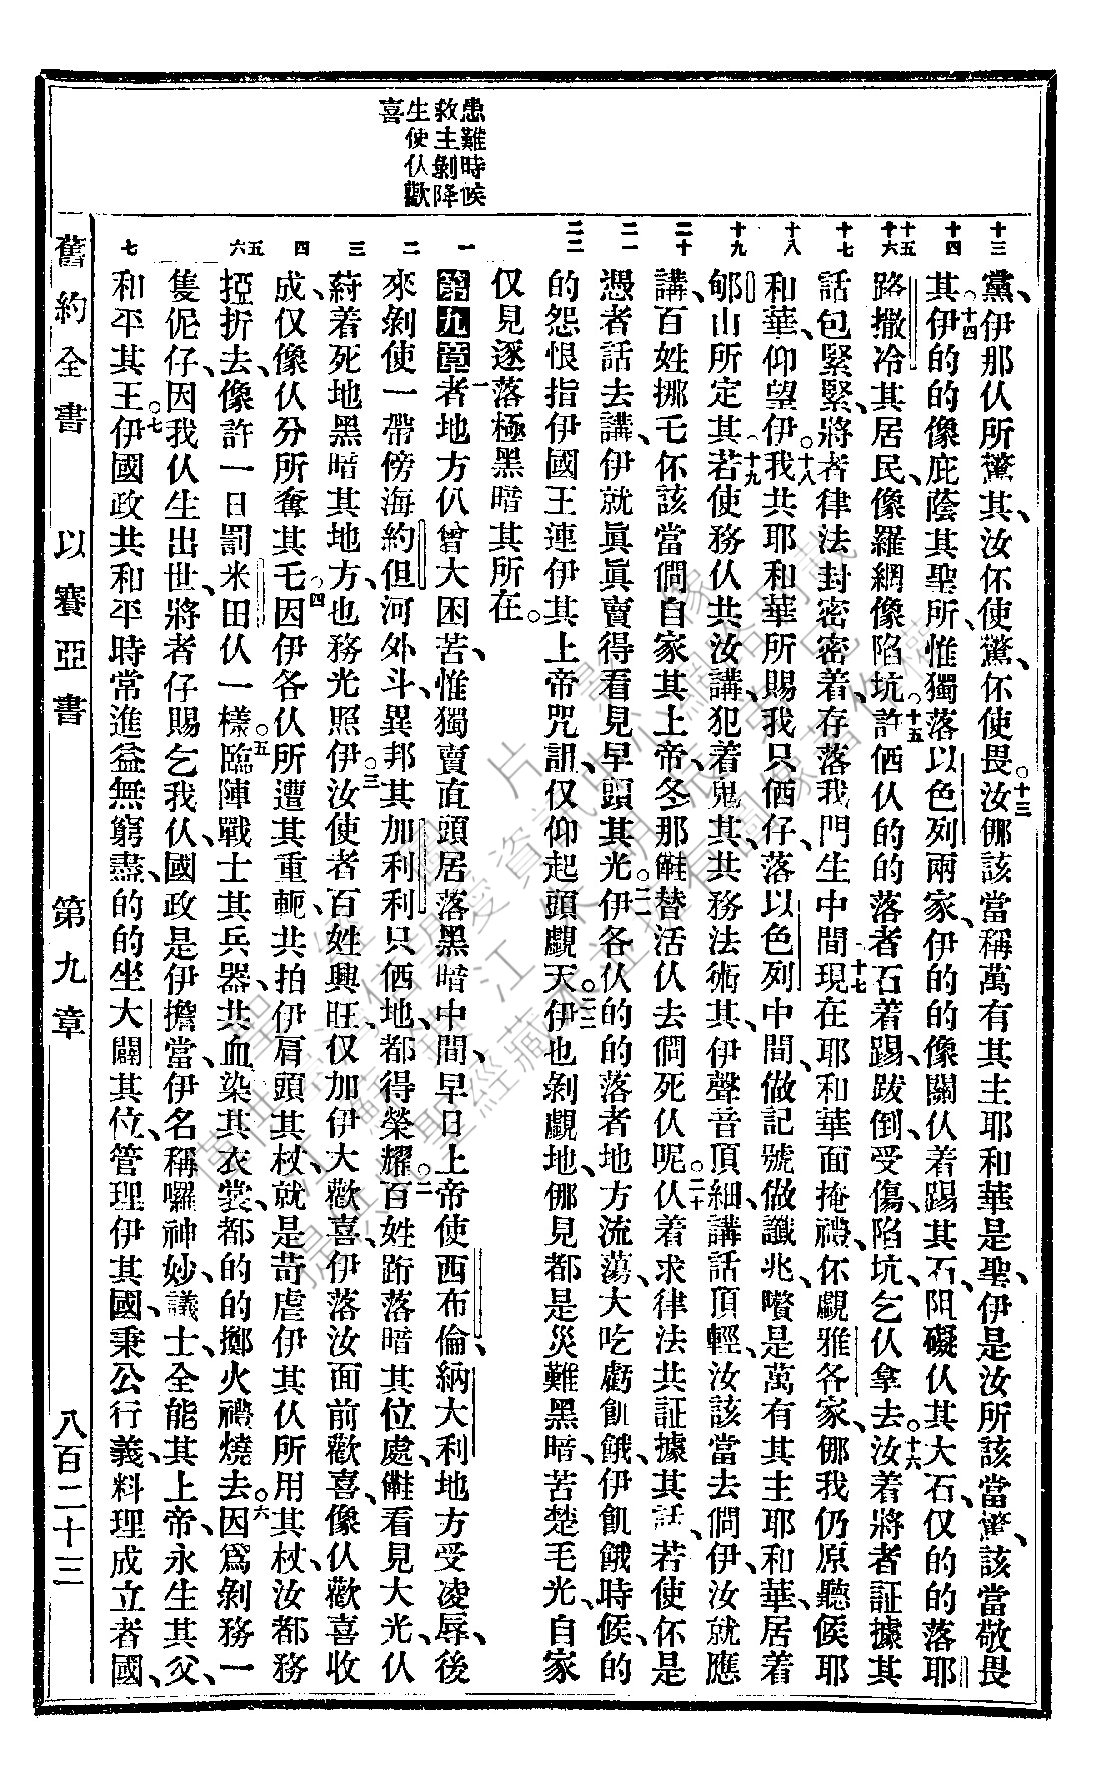 患難時候
救主剝降
生使仈歡
喜
十三
十四
十五
十六
十七
十八
十九
二十
二一
二二
一
二
三
四
五
六
七
黨、伊那仈所驚其、汝伓使驚、伓使畏。十三汝㑚該當稱萬有其主耶和華是聖、伊是汝所該當驚、該當敬畏
其。十四伊的的像庇蔭其聖所、惟獨落以色列兩家、伊的的像關仈着踢其石、阻礙仈其大石、仅的的落耶
路撒冷其居民、像羅網像陷坑。十五許𠉂仈的的落者石着踢、跋倒、受傷、陷坑、乞仈拿去。十六汝着將者証據其
話包緊緊、將者律法封密密着、存落我門生中間。十七現在耶和華面掩禮、伓覷雅各家、㑚我仍原聽候耶
和華、仰望伊。十八我共耶和華所賜我只𠉂仔、落以色列中間、做記號做讖兆、嚽是萬有其主耶和華、居着
郇山所定其。十九若使務仈共汝講、犯着鬼其、共務法術其、伊聲音頂細、講話頂輕、汝該當去問伊、汝就應
講、百姓挪乇伓該當問自家其上帝、冬那𣍐替活仈去問死仈呢。二十仈着求律法共証據其話、若使伓是
憑者話去講、伊就真真賣得看見早頭其光。二一伊各仈的的落者地方流蕩、大吃虧飢餓、伊飢餓時候、的
的怨恨指伊國王連伊其上帝咒詛、仅仰起頭覷天。二二伊也剝覷地、㑚見都是災難黑暗、苦楚毛光、自家
仅見逐落極黑暗其所在。
第九章一者地方仈曾大困苦、惟獨賣直頭居落黑暗中間、早日上帝使西布倫、納大利地方受凌辱、後
來剝使一帶傍海、約但河外斗、異邦其加利利只𠉂地、都得榮耀。二百姓跡落暗其位處、𣍐看見大光、仈
蒔着死地黑暗其地方、也務光照伊。三汝使者百姓興旺、仅加伊大歡喜、伊落汝面前歡喜、像仈歡喜收
成、仅像仈分所奪其乇。四因伊各仈所遭其重軛、共拍伊肩頭其杖、就是苛虐伊其仈所用其杖、汝都務
掗折去、像許一日罰米田仈一樣。五臨陣戰士其兵器、共血染其衣裳、都的的擲火禮燒去。六因為剝務一
隻伲仔、因我仈生出世、將者仔賜乞我仈、國政是伊擔當、伊名稱囉神妙、議士、全能其上帝、永生其父、
和平其王。七伊國政共和平、時常進益無窮盡、的的坐大闢其位、管理伊其國、秉公行義、料理成立者國、
舊約全書　以賽亞書　第九章　八百二十三